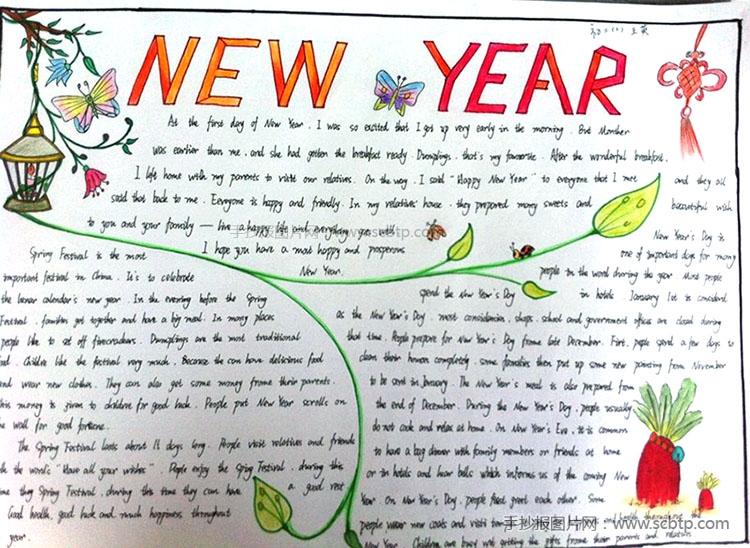 NEW YEAR
At the first day of New Year. I was so excited that I got up very early in the morning. But Monther
was earlier than me, and she had gotten the breakfast ready. Dumplings, that's my favourite. After the wonderful breakfast.
I life home with my parents to visite our relatives. On the way, I said "Happy New Year" to everyone that I met and they all
said that back to me. Everyone is happy and friendly. In my relatives' house, they prepared money sweets and beautiful wish
to you and your family — live a happy life and everyday
I hope you have a most happy and prosperous
New Year.
Spring Festival is the most
important festival in China. It's to celebrate
the lunar calendar's new year. In the evening before the Spring
Festival, families get together and have a big meal. In many places
people like to set off firecrackers. Dumplings are the most traditional
food. Childre like the festival very much. Because the can have delicious food
and wear new clothes. They can also get some money frome their parents.
this money is given to children for good luck. People put New Year scrolls on
the wall for good fortune.
The Spring Festival lasts about 15 days long. People visit relatives and friends
the words "Have all your wishes". People enjoy the Sping Festival, during this
time they Spring Festival, during this time they can have a good rest
Good health, good luck and much happiness throughout
year.
New Year's Day is
one of important days for many
people in the word durning the year. Most people
spend the New Year's Day in hotels. January 1st is considered
as the New Year's Day. most
shops, school and government offices are closed during
that time. People prepare for New Year's Day frome late December. First, people spend a few days to
clean their houses completely. some families then put up some new painting from November
to be sent in January. The New Year's meal is also prepared from
the end of December. During the New Year's Day, people usually
do not cook and relax at home. On New Year's Eve, it is common
to have a bag dinner with family members or friends at home
or in hotels and hear bells which informs us of the coming New
Year. On New Year's Day, people first greet each other. Some
people wear new coats and visit
New Year. Children are busy with getting the gifts frome their parents and relation
手抄报图片网：www.scbtp.com
手抄报图片网：www.scbtp.com